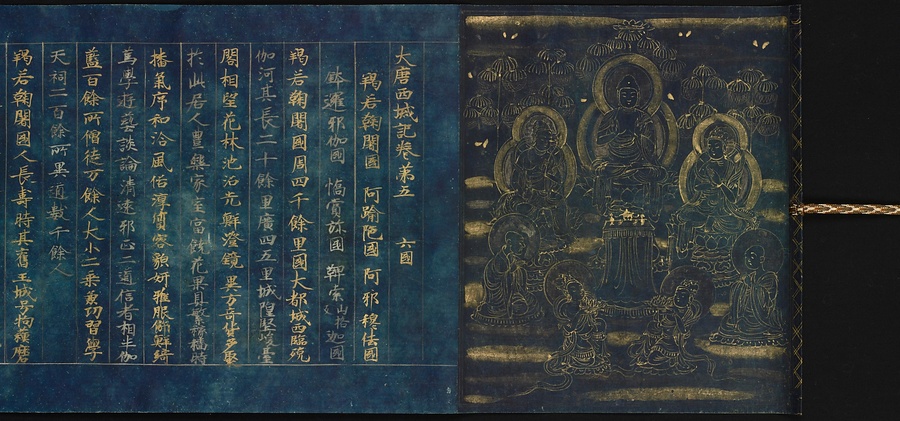 大唐西域記卷第五　六國
羯若鞠闍國　阿踰陁國　阿邪穆佉國
鉢邏邪伽國　憍賞弥國　鞞索山格迦國
羯若鞠闍國周四千餘里國大都城西臨殑
伽河其長二十餘里廣四五里城隍堅峻臺
閣相望花林池沼光鮮澄鏡異方奇貨多聚
於此居人豊樂家室富饒花果具繁稼穡時
播氣序和洽風俗淳質容貌妍雅服飾鮮綺
篤學遊藝談論清遠邪正二道信者相半伽
藍百餘所僧徒万餘人大小二乘兼功習學
天祠二百餘所異道數千餘人
羯若鞠闍國人長壽時其舊王城号拘蘓磨